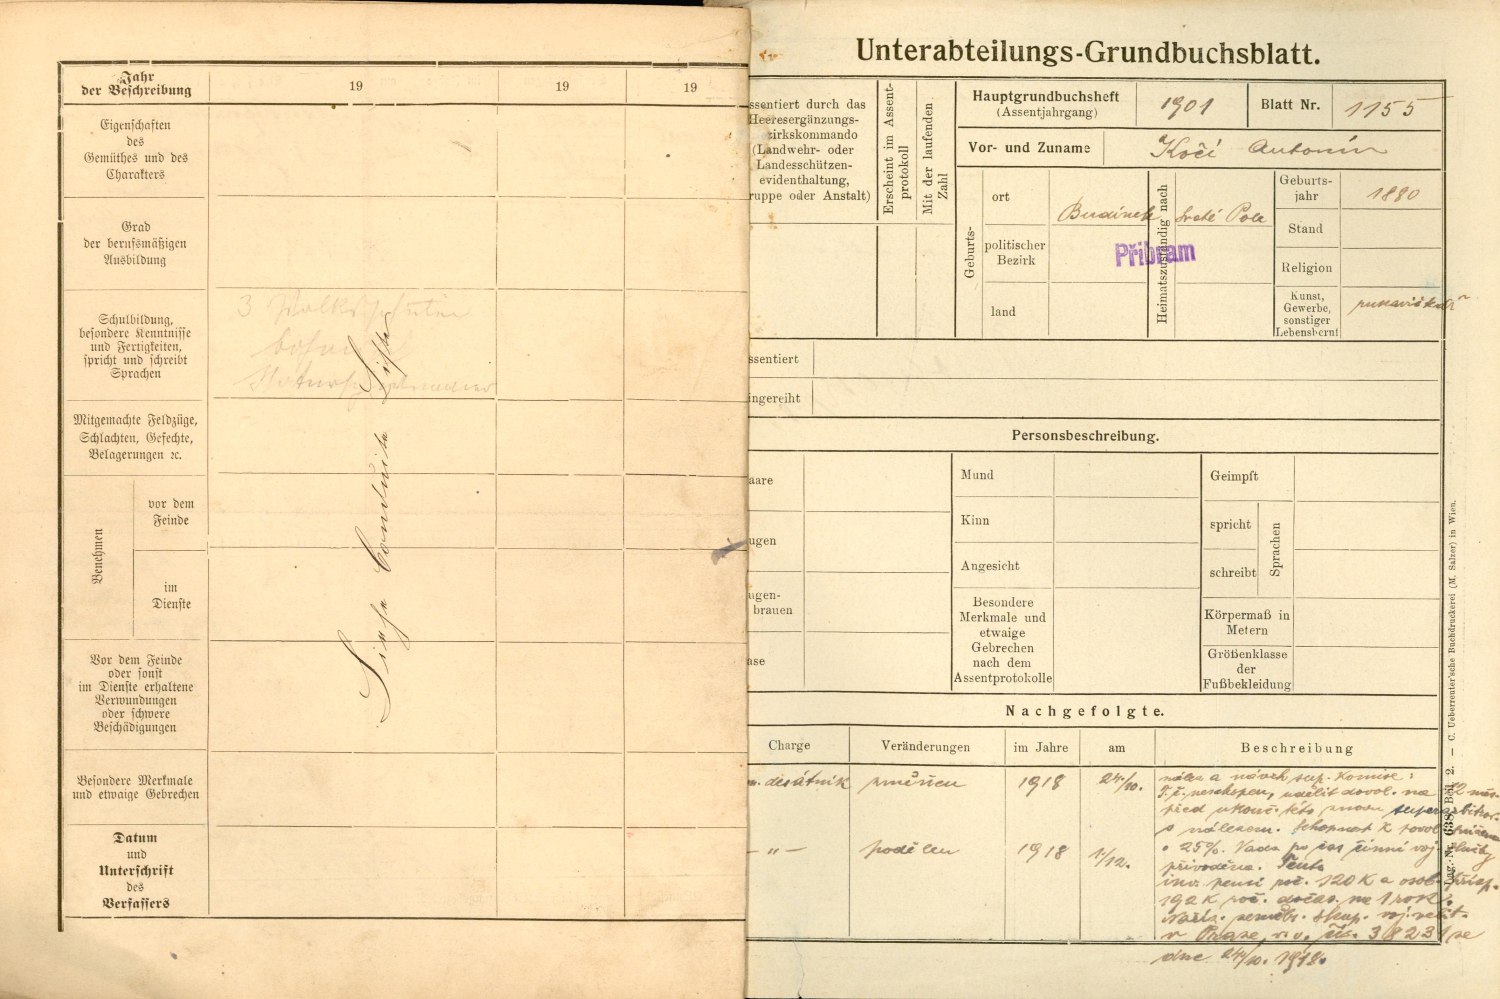 Jahr
der Beschreibung
19
19
19
Eigenschaften
des
Gemüthes und des
Charakters
Grad
der berufsmäßigen
Ausbildung
Schulbildung,
besondere Kenntnisse
und Fertigkeiten,
spricht und schreibt
Sprachen
3
Mitgemachte Feldzüge,
Schlachten, Gefechte,
Belagerungen ꝛc.
Benehmen
vor dem
Feinde
im
Dienste
Vor dem Feinde
oder sonst
im Dienste erhaltene
Verwundungen
oder schwere
Beschädigungen
Besondere Merkmale
und etwaige Gebrechen
Datum
und
Unterschrift
des
Verfassers
Siehe Conduite Liste
Unterabteilungs-Grundbuchsblatt.
ssentiert durch das
Heeresergänzungs-
zirkskommando
(Landwehr- oder
Landesschützen-
evidenthaltung,
ruppe oder Anstalt)
Erscheint im Assent-
protokoll
Mit der laufenden
Zahl
Hauptgrundbuchsheft
(Assentjahrgang)
1901
Blatt Nr.
1155
Vor- und Zuname
Kočí Antonín
Geburts-
ort
politischer
Bezirk
land
Budínek
Příbram
Heimatszuständig nach
Svaté Pole
Geburts-
jahr
1880
Stand
Religion
Kunst,
Gewerbe,
sonstiger
Lebensberuf
rukavičkář
ssentiert
ingereiht
Personsbeschreibung.
aare
ugen
ugen-
brauen
ase
Mund
Kinn
Angesicht
Besondere
Merkmale und
etwaige
Gebrechen
nach dem
Assentprotokolle
Geimpft
spricht
schreibt
Sprachen
Körpermaß in
Metern
Größenklasse
der
Fußbekleidung
Nachgefolgte.
Charge
Veränderungen
im Jahre
am
Beschreibung
desátník
1918
24/10.
nález a návrh sup. komise:
udělit dovol. na 12 měs.
před ukonč. této znovu superarbitror.
s nálezem. Schopnost k povol.
o 25%. Vada po čas činné voj. služby
přivoděna.
– „ –
podělen
1918
1/12.
inv. pensí roč. 120 K a osob. přísp.
192 K roč. dočas. na 1 rok.
voj. velit.
v Praze, čís. 38231 ze
dne 24/10. 1918.
Lag.-Nr. 638 Beil. 2. — C. Ueberreuter'sche Buchdruckerei (M. Salzer) in Wien.